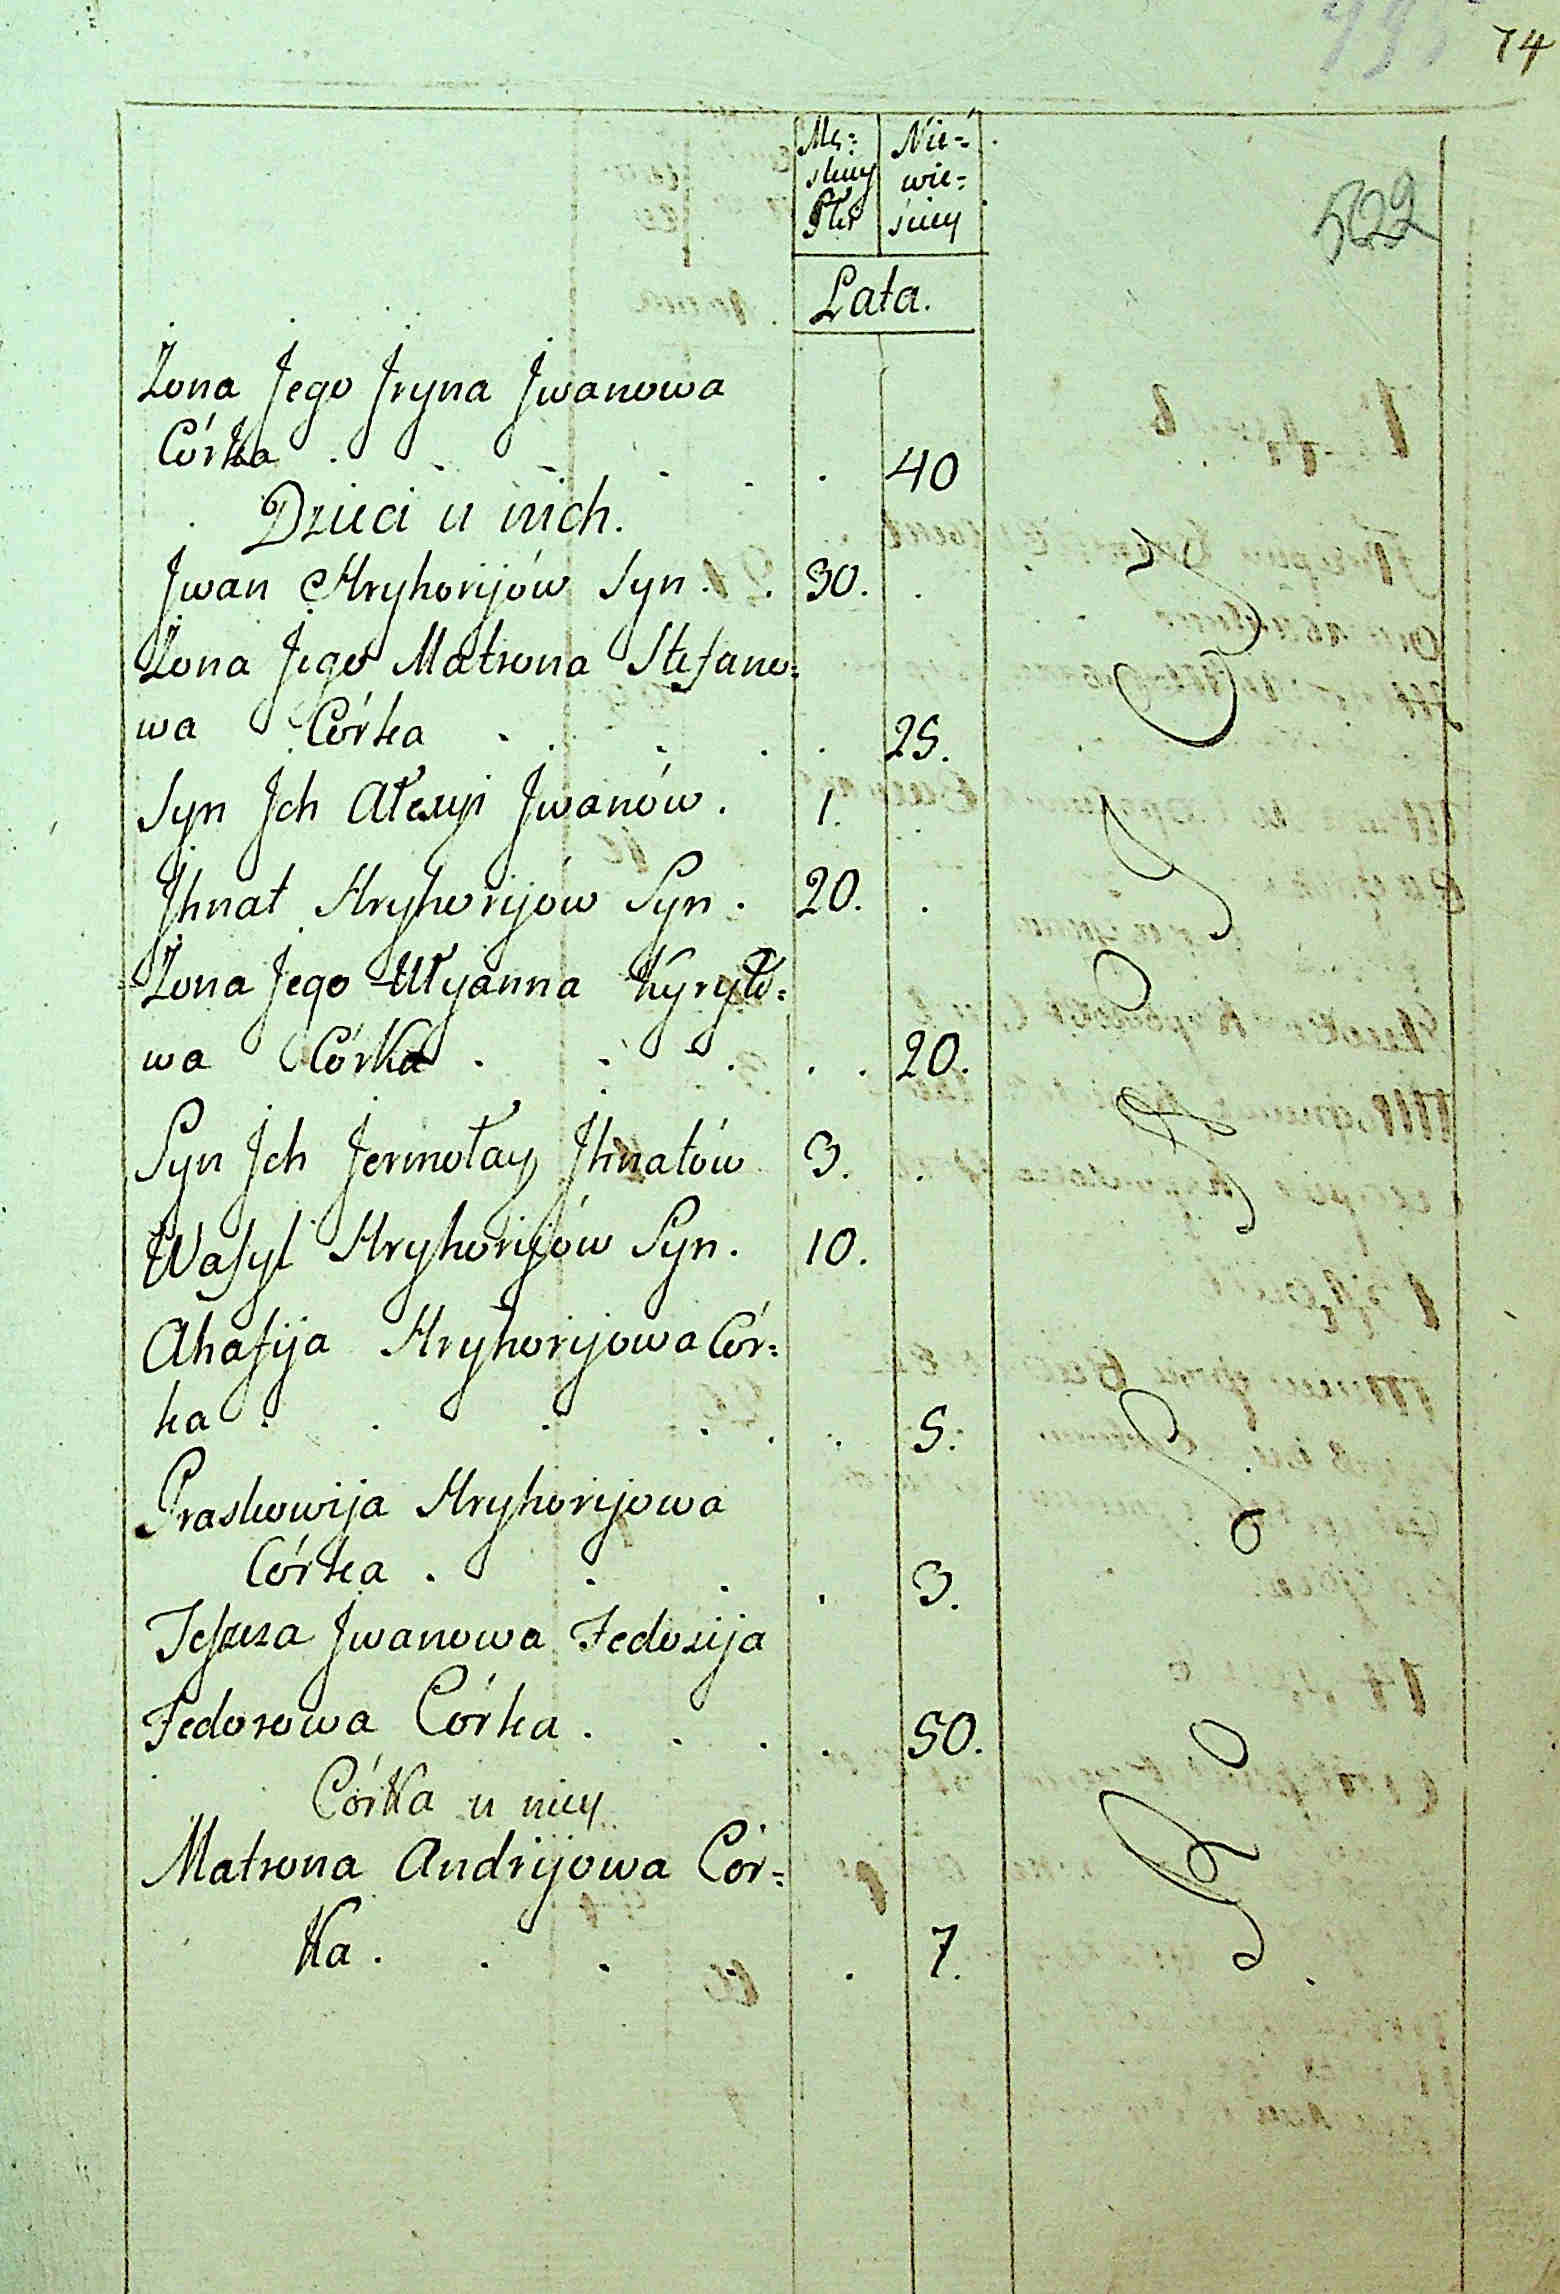 74
522
Mę= Nie=
skiey wie=
Płci ściey
Lata.
Żona Jego Jryna Jwanowa
Córka . . . . . . 40
Dzieci u nich.
Jwan Hryhorijów Syn . . 30. .
Żona Jego Matrona Stefano=
wa Córka . . . . . 25.
Syn Jch Ałexyi Jwanów. 1. .
Jhnat Hryhorijów Syn . 20. .
Żona Jego Ułyanna Kyryło=
wa Córka . . . . . 20.
Syn Jch Jermołay Jhnatów 3. .
Wasyl Hryhorijów Syn. 10.
Ahafija Hryhorijowa Cór=
ka . . . . . . 5.
Praskowija Hryhorijowa
Córka . . . . 3.
Teszcza Jwanowa Fedosija
Fedorowa Córka . . . . 50.
Córka u niey
Matrona Andrijowa Cór=
ka . . . . 7.